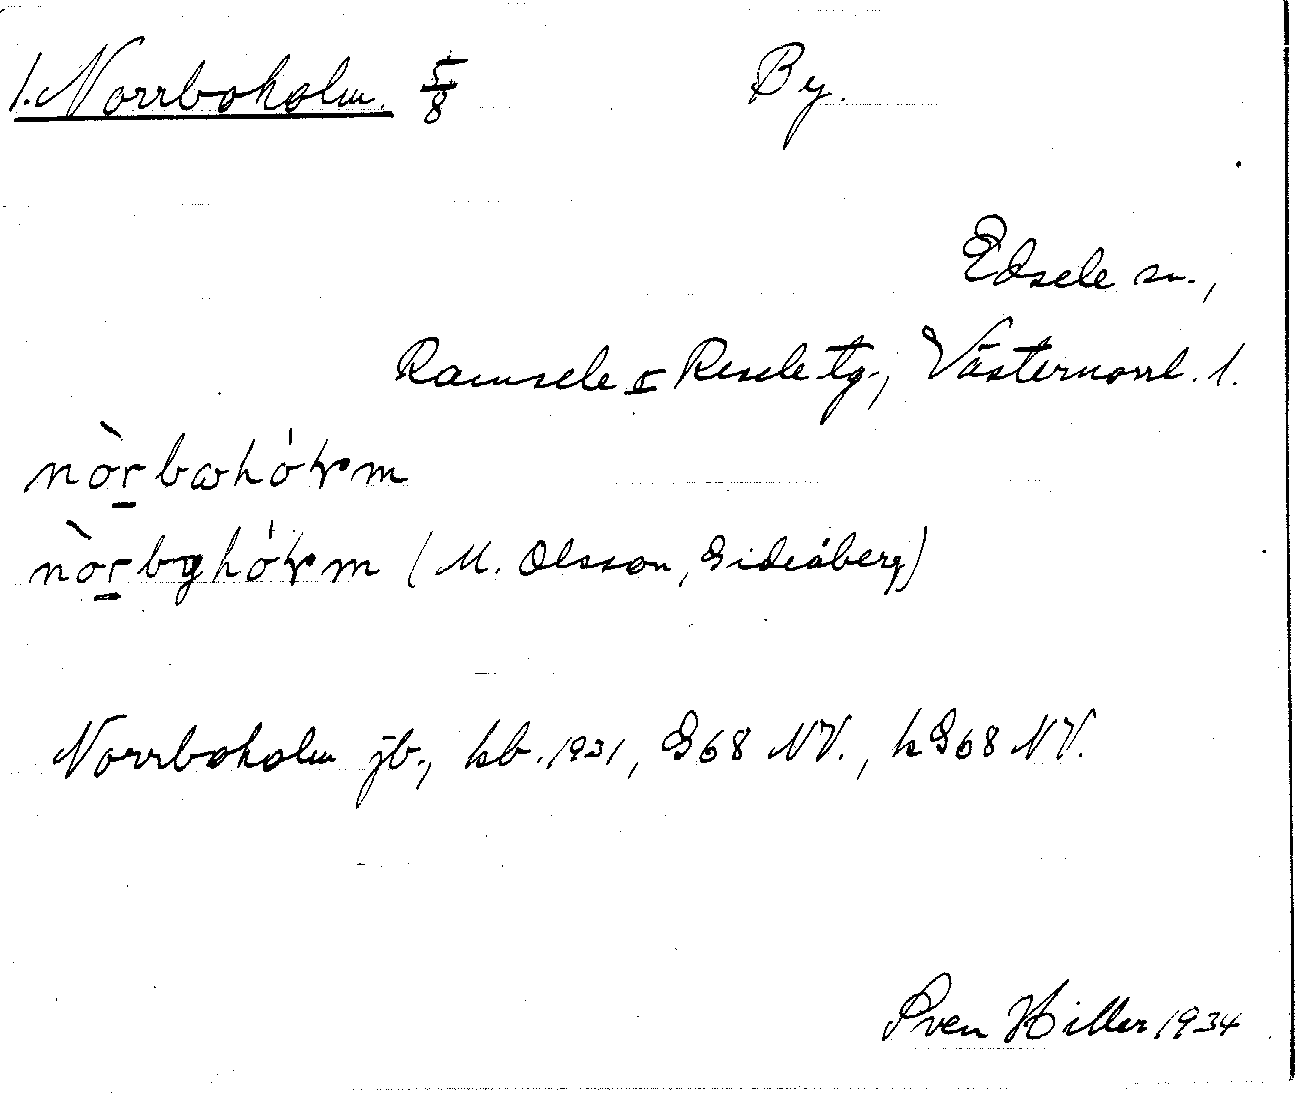 1. Norrboholm. 5/8 By.
Edsele sn.,
Ramsele o Resele tg., Västernorrl. l.
nòrbωhólm
nòrbyhólm (M. Olsson, Gideåberg)
Norrboholm jb., kb. 1931, G68 NV., kG68 NV.
Sven Hiller 1934